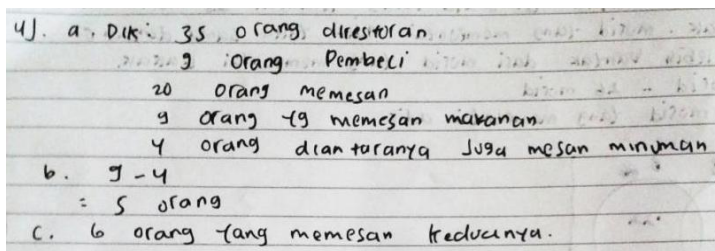 4). a. Dik : 35 orang direstoran
9 orang Pembeli
20 orang memesan
9 orang yg memesan makanan
4 orang diantaranya Juga mesan minuman
b. 9 - 4
= 5 orang
c. 6 orang yang memesan keduanya.